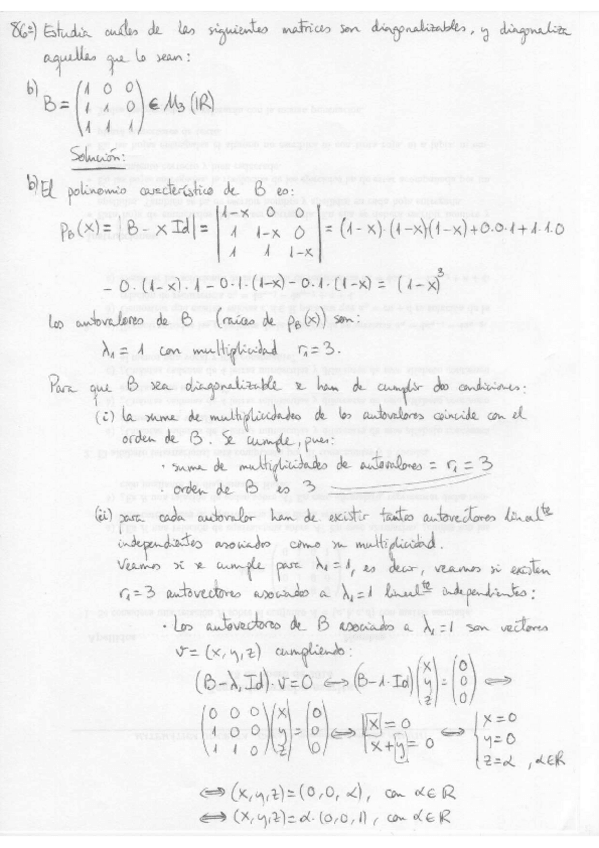 86º) Estudia cuáles de las siguientes matrices son diagonalizables, y diagonaliza
aquellas que lo sean:
b) B = (1 0 0; 1 1 0; 1 1 1) ∈ M₃(ℝ)
Solución:
b) El polinomio característico de B es:
p_B(x) = |B - x Id| = |1-x 0 0; 1 1-x 0; 1 1 1-x| = (1-x)·(1-x)(1-x)+0·0·1+1·1·0
- 0·(1-x)·1 - 0·1·(1-x) - 0·1·(1-x) = (1-x)³
Los autovalores de B (raíces de p_B(x)) son:
λ₁ = 1 con multiplicidad r₁ = 3.
Para que B sea diagonalizable se han de cumplir dos condiciones:
(i) la suma de multiplicidades de los autovalores coincide con el
orden de B. Se cumple, pues:
· suma de multiplicidades de autovalores = r₁ = 3
· orden de B es 3
(ii) para cada autovalor han de existir tantos autovectores linealᵗᵉ
independientes asociados como su multiplicidad.
Veamos si se cumple para λ₁=1, es decir, veamos si existen
r₁=3 autovectores asociados a λ₁=1 linealᵗᵉ independientes:
· Los autovectores de B asociados a λ₁=1 son vectores
v = (x,y,z) cumpliendo:
(B-λ₁Id)·v=0 ⟺ (B-1·Id)(x; y; z) = (0; 0; 0) ⟺
(0 0 0; 1 0 0; 1 1 0)(x; y; z) = (0; 0; 0) ⟺ {x = 0; x + y = 0 ⟺ {x=0; y=0; z=α, α∈ℝ
⟺ (x,y,z) = (0,0,α), con α∈ℝ
⟺ (x,y,z) = α·(0,0,1), con α∈ℝ